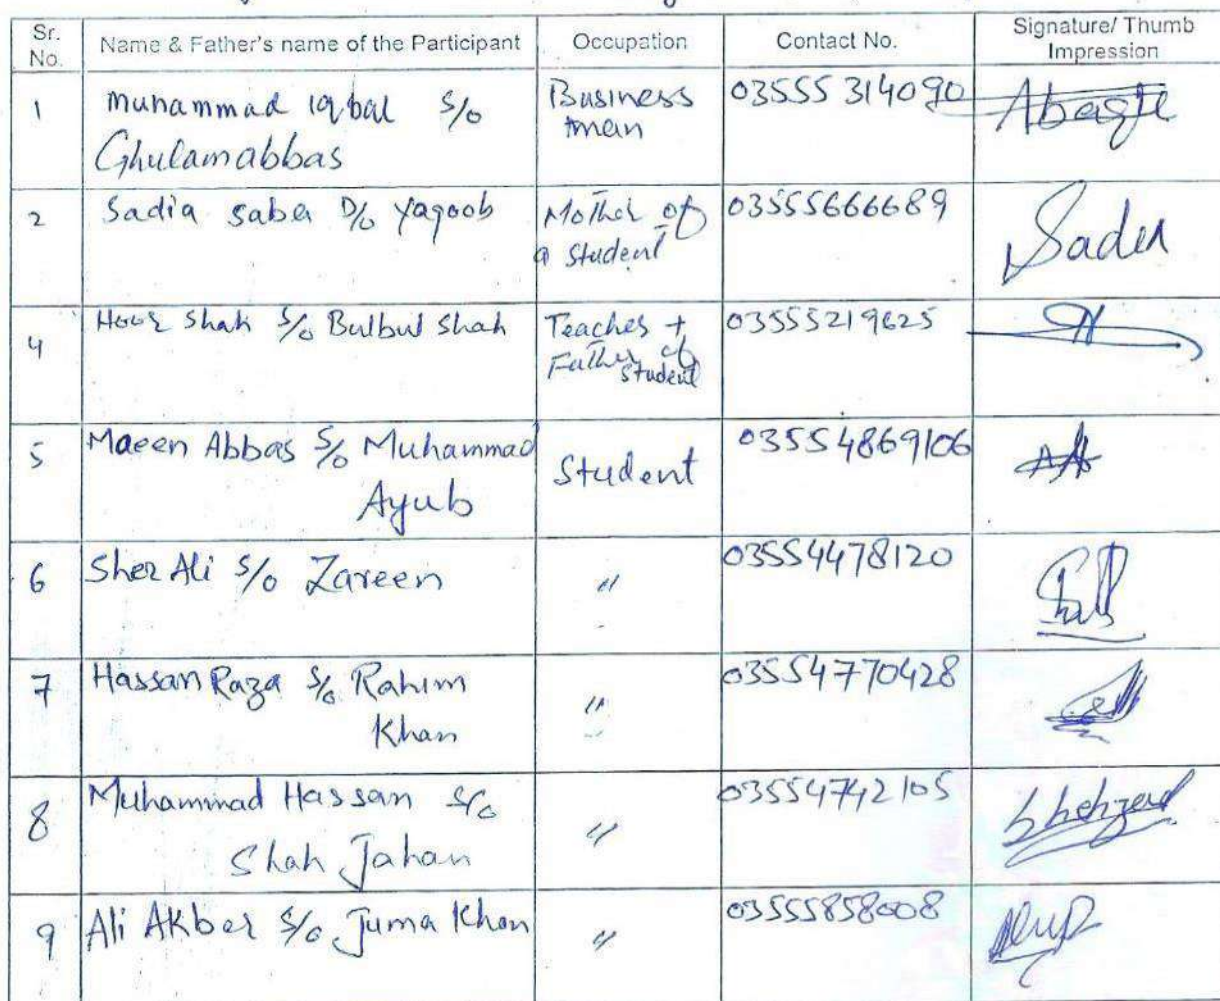 Sr. No. Name & Father's name of the Participant Occupation Contact No. Signature/ Thumb Impression
1 Muhammad iqbal S/o Ghulamabbas Business man 03555314090
2 Sadia saba D/o Yaqoob Mother of a student 03555666689 Sadia
4 Shah S/o Bulbul Shah Teacher + Father of student 03555219625
5 Abbas S/o Muhammad Ayub Student 03554869106
6 Sher Ali S/o Zareen 〃 03554478120
7 Hassan Raza S/o Rahim Khan 〃 03554770428
8 Muhammad Hassan S/o Shah Jahan 〃 03554742105
9 Ali Akber S/o Juma Khan 〃 03555858008